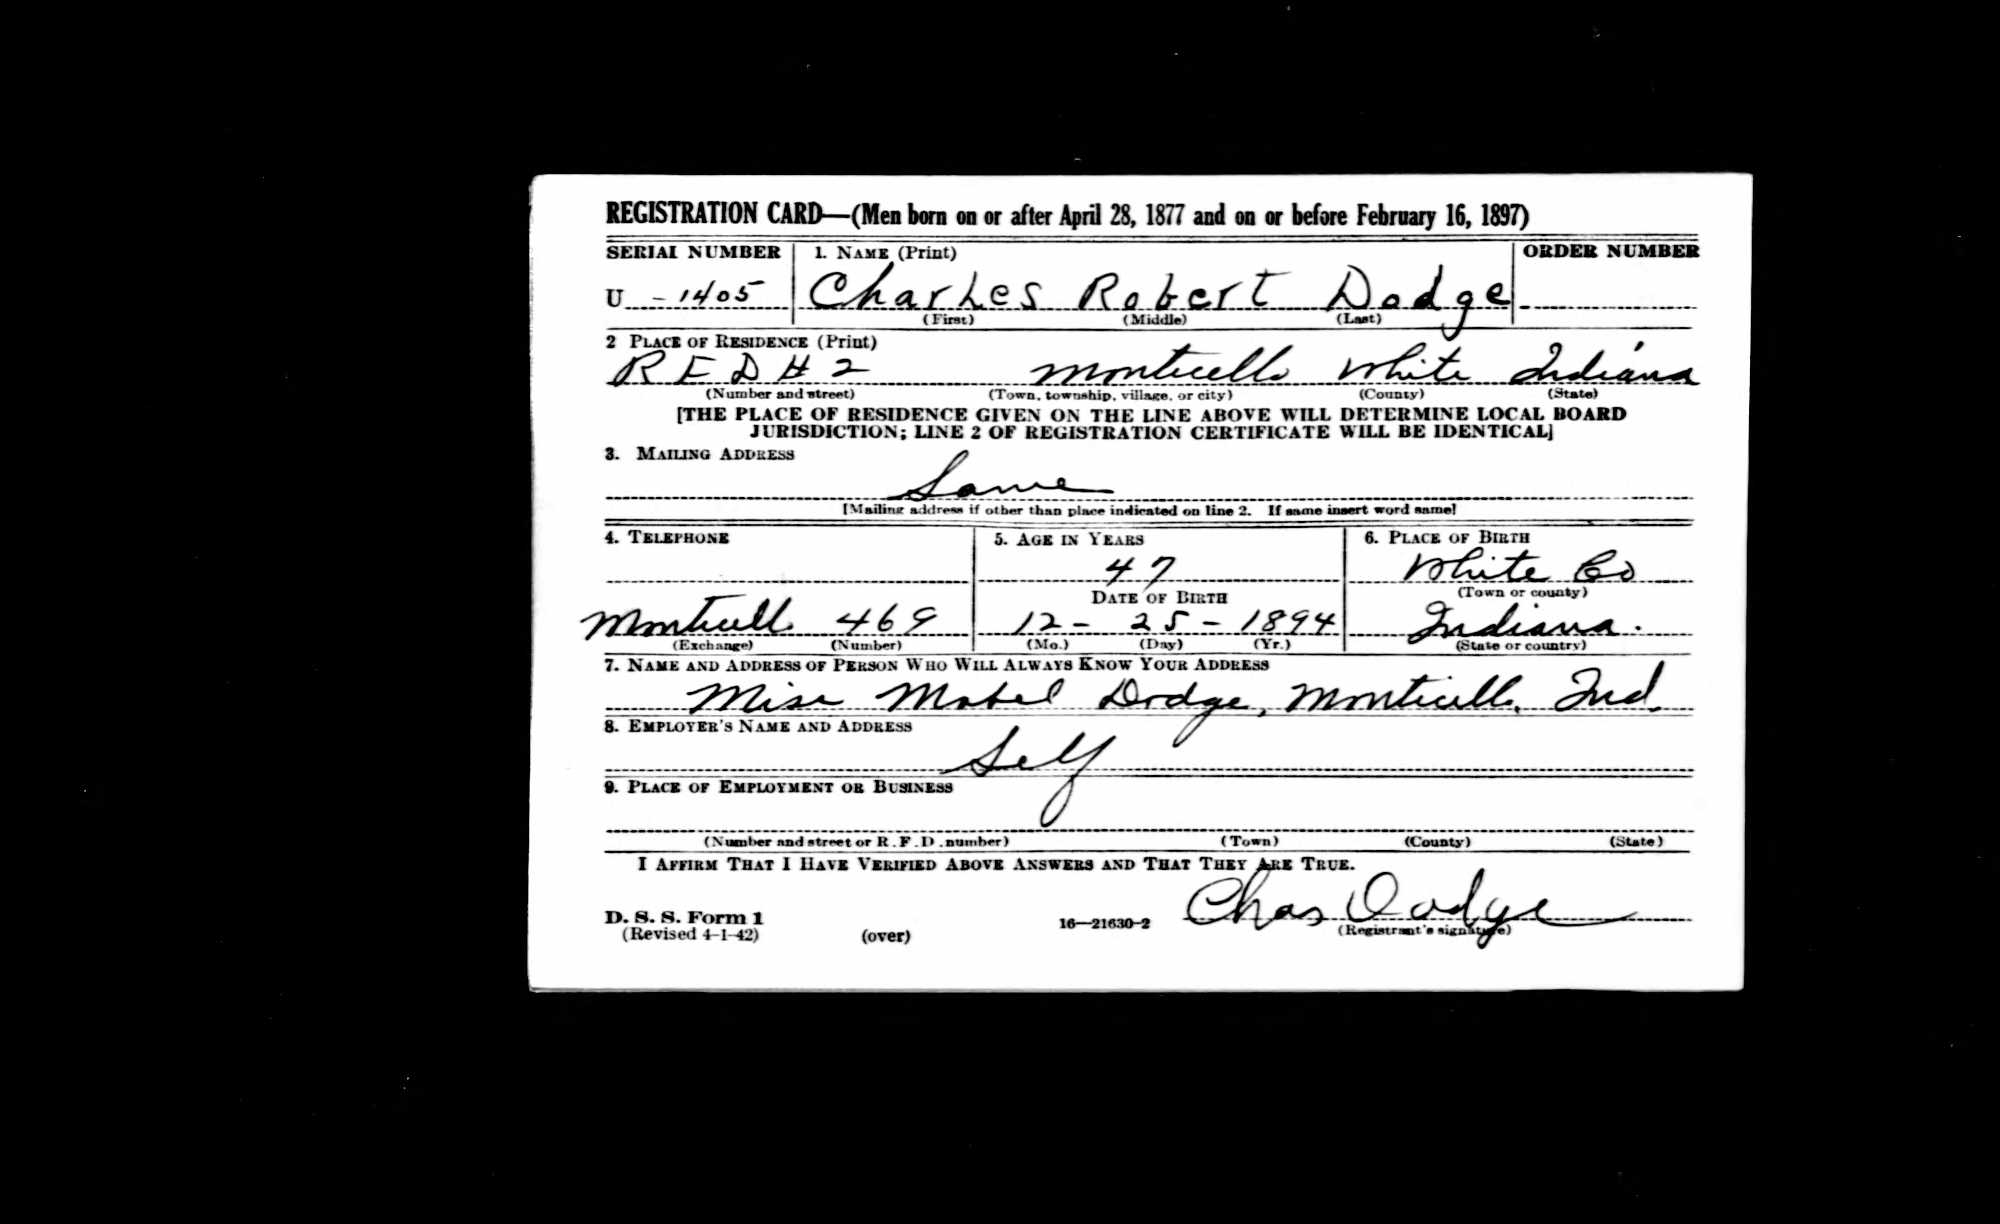 REGISTRATION CARD—(Men born on or after April 28, 1877 and on or before February 16, 1897)
SERIAL NUMBER 1. NAME (Print) ORDER NUMBER
U -1405 Charles Robert Dodge
(First) (Middle) (Last)
2 PLACE OF RESIDENCE (Print)
R F D # 2 Monticello White Indiana
(Number and street) (Town, township, village, or city) (County) (State)
[THE PLACE OF RESIDENCE GIVEN ON THE LINE ABOVE WILL DETERMINE LOCAL BOARD
JURISDICTION; LINE 2 OF REGISTRATION CERTIFICATE WILL BE IDENTICAL]
3. MAILING ADDRESS
Same
[Mailing address if other than place indicated on line 2. If same insert word same]
4. TELEPHONE 5. AGE IN YEARS 6. PLACE OF BIRTH
47 White Co
DATE OF BIRTH (Town or county)
Monticello 469 12 - 25 - 1894 Indiana.
(Exchange) (Number) (Mo.) (Day) (Yr.) (State or country)
7. NAME AND ADDRESS OF PERSON WHO WILL ALWAYS KNOW YOUR ADDRESS
Miss Mabel Dodge, Monticello, Ind.
8. EMPLOYER'S NAME AND ADDRESS
Self
9. PLACE OF EMPLOYMENT OR BUSINESS
(Number and street or R. F. D. number) (Town) (County) (State)
I AFFIRM THAT I HAVE VERIFIED ABOVE ANSWERS AND THAT THEY ARE TRUE.
Chas Dodge
D. S. S. Form 1 16—21630-2
(Revised 4-1-42) (over) (Registrant's signature)